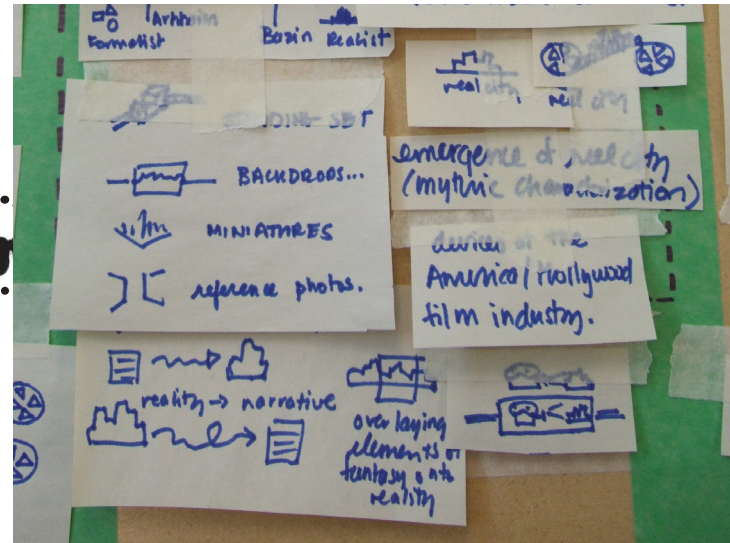 Arnheim
Formalist
Bazin Realist
STANDING-SET
BACKDROPS...
MINIATURES
reference photos.
real city
reel city
emergence of reel city
(mythic characterization)
devices of the
America/Hollywood
film industry.
reality → narrative
overlaying
elements of
fantasy onto
reality